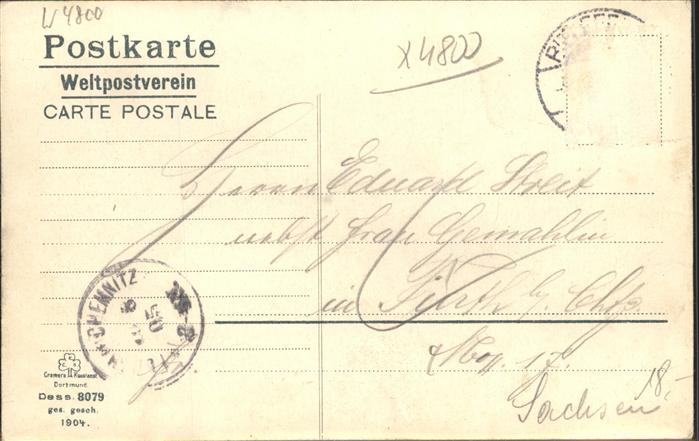 W 4800
x 4800
Postkarte
Weltpostverein
CARTE POSTALE
Herrn Eduard Streit
nebst Frau Gemahlin
in Fürth b/ Chtz
Sachsen
18.-
CHEMNITZ
Cramers Kunstanst.
Dortmund
Dess. 8079
ges. gesch.
1904.